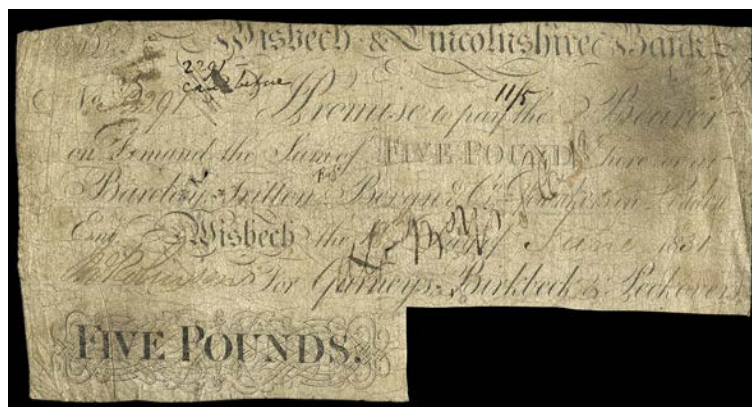 Wisbech & Lincolnshire Bank
2291
came before
No 2291 I Promise to pay the Bearer
11/5
on Demand the Sum of FIVE POUNDS here or at
Barclay, Tritton, Bevan & Co London
Entd. Wisbech the day of June 1831
For Gurneys, Birkbeck & Peckovers
FIVE POUNDS.